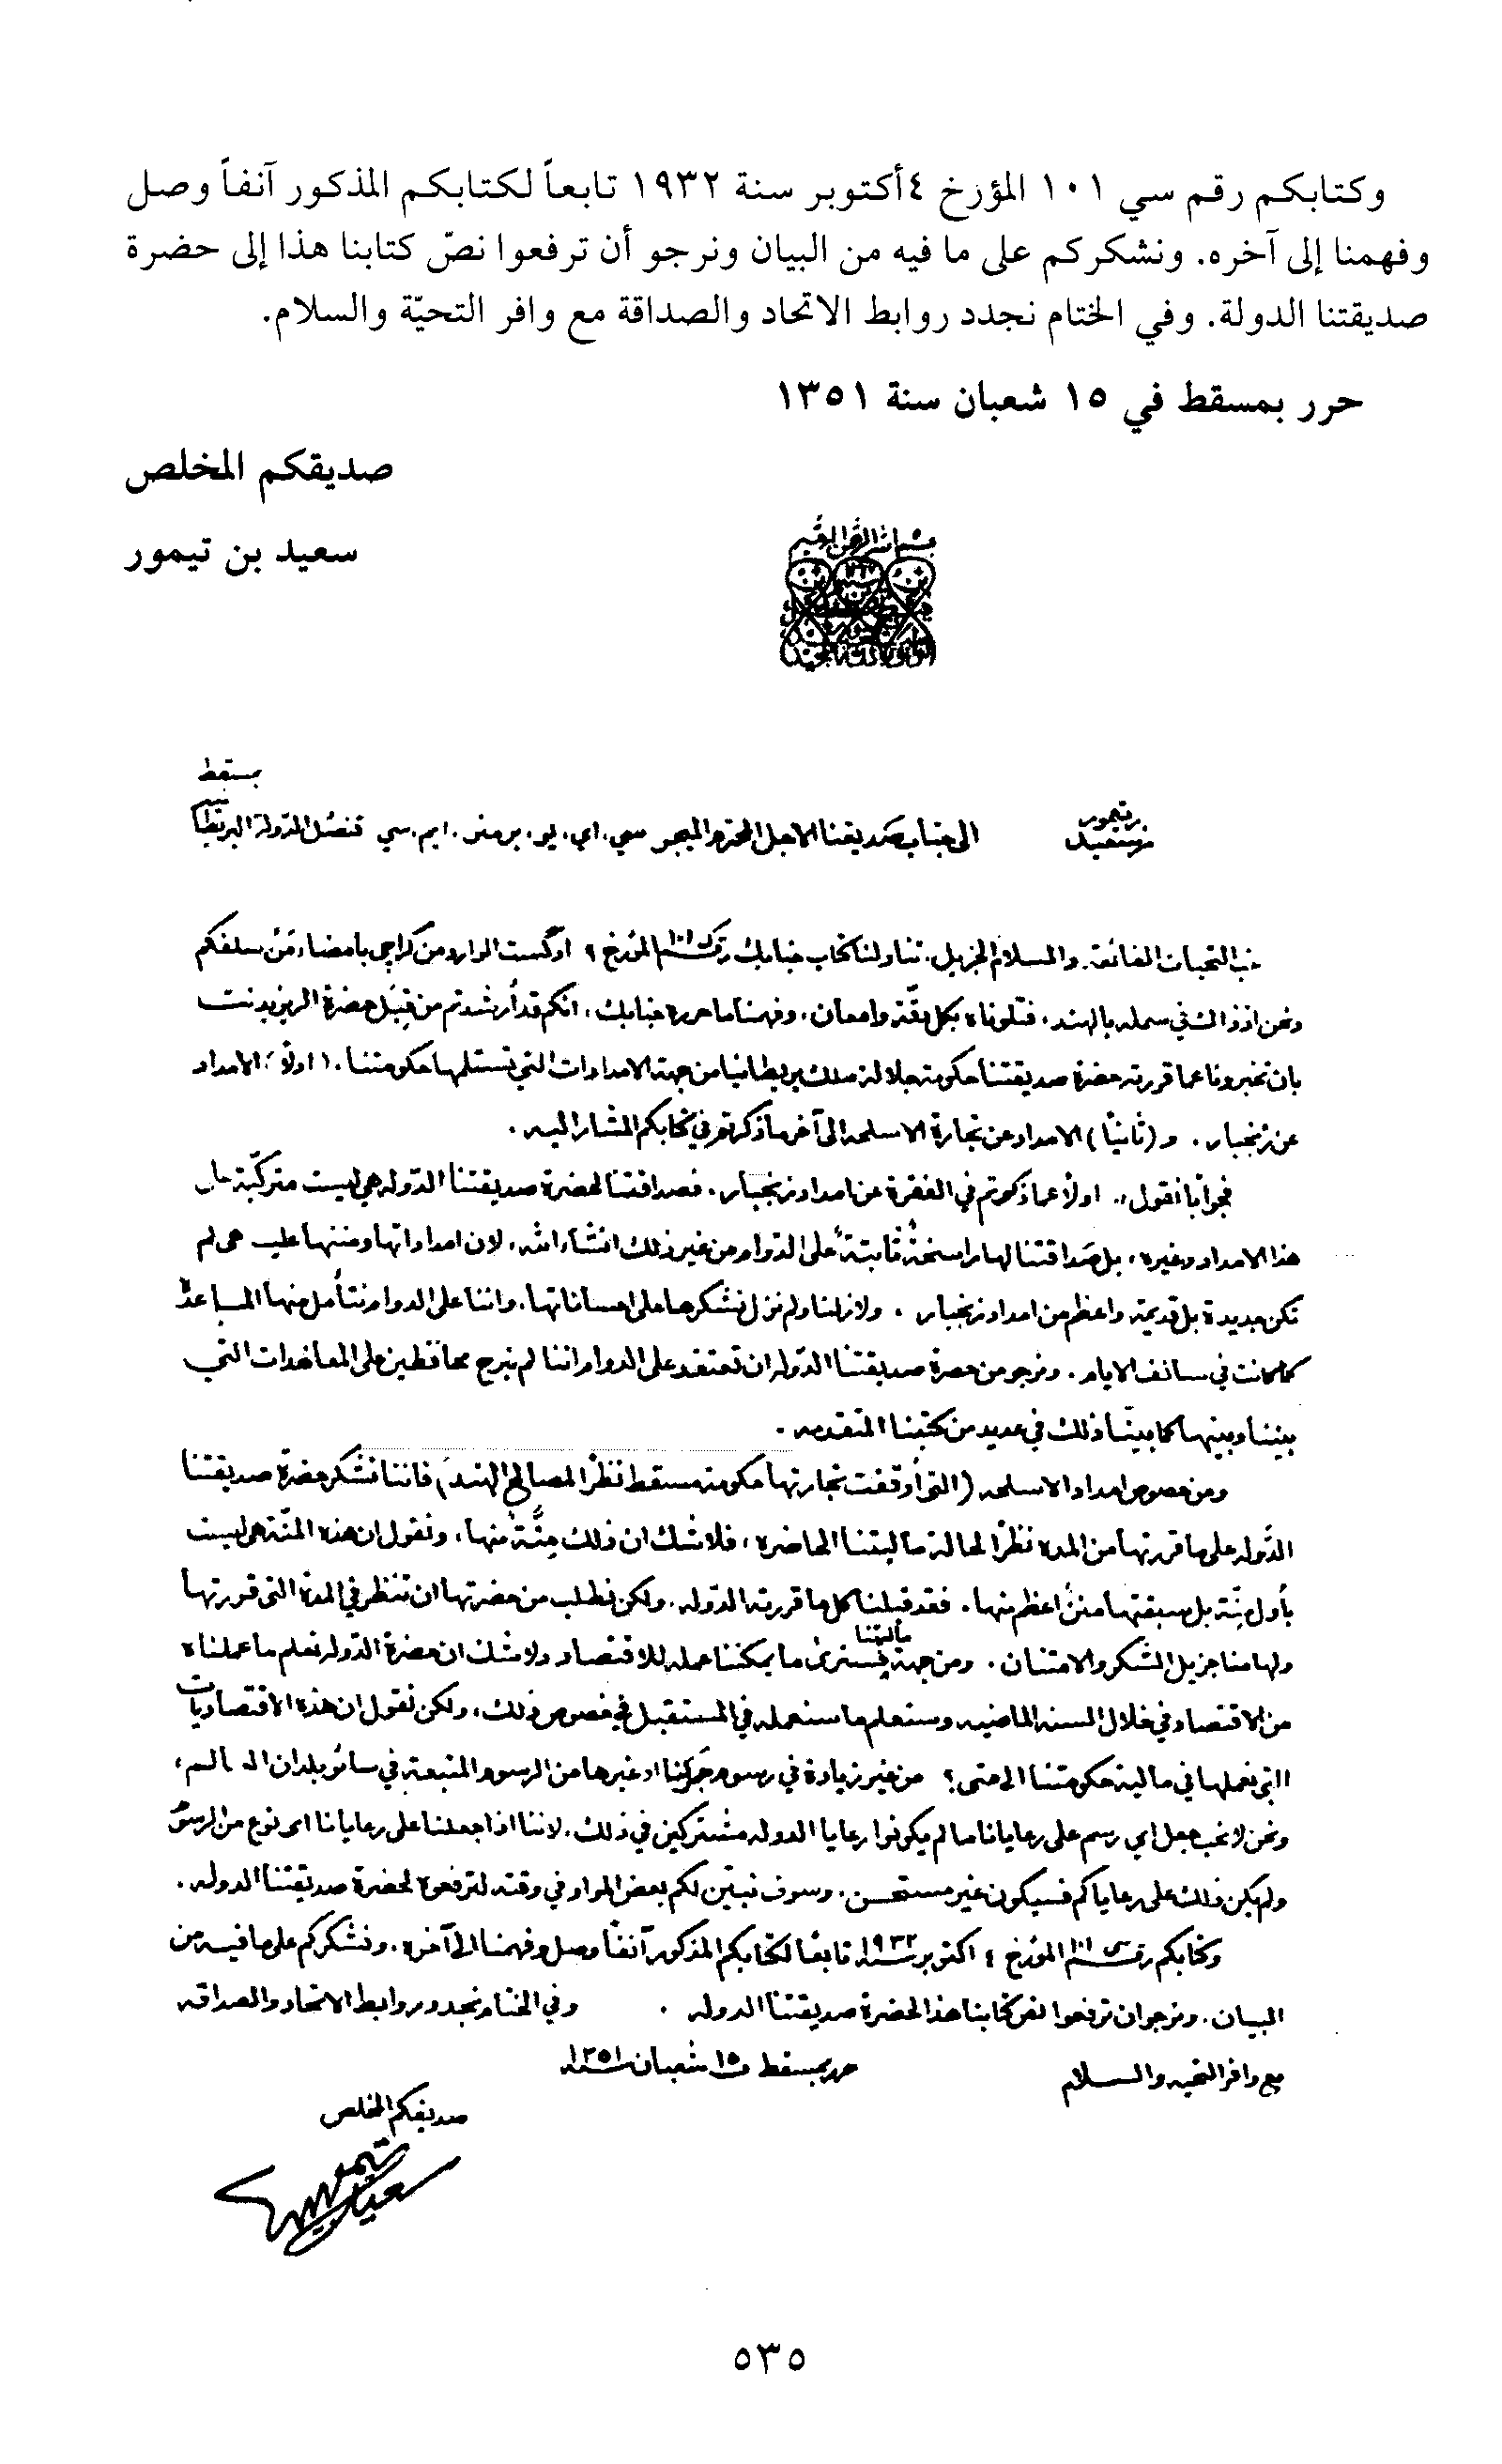 وكتابكم رقم سي ١٠١ المؤرخ ٤أكتوبر سنة ١٩٣٢ تابعاً لكتابكم المذكور آنفاً وصل
وفهمنا إلى آخره. ونشكركم على ما فيه من البيان ونرجو أن ترفعوا نصّ كتابنا هذا إلى حضرة
صديقتنا الدولة. وفي الختام نجدد روابط الاتحاد والصداقة مع وافر التحيّة والسلام.
حرر بمسقط في ١٥ شعبان سنة ١٣٥١
صديقكم المخلص
سعيد بن تيمور
من سعيد بن تيمور
الى جناب صديقنا الاجل المحترم الميجر سي. اي. يو. بريمنر. ايم. سي قنصل الدولة البريطانية
بمسقط
غب التحيات الفائقة. والسلام الجزيل. تناولنا كتاب جنابك رقم سي ١٠١ المؤرخ ٩ اوگست الوارد من كراچي بامضاء مَن سلفكم
ونحن اذ ذاك في سمله بالهند، فتلوناه بكل دقّة وامعان، وفهمنا ما حرره جنابك، انكم قد أرشدتم من قِبَل حضرة الريزيدنت
بان تخبرونا عما قررته حضرة صديقتنا حكومة جلالة ملك بريطانيا من جهة الامدادات التي تستلمها حكومتنا. (اولاً) الامداد
عن زنجبار. و (ثانيًا) الامداد عن تجارة الاسلحه الى آخر ما ذكرتم في كتابكم المشار اليه.
فجوابًا نقول،، اولاً عما ذكرتم في الفقرة عن امداد زنجبار. فصداقتنا لحضرة صديقتنا الدوله هي ليست متركّبة على
هذا الامداد وغيره، بل صَداقتنا لها راسخةٌ ثابتةٌ على الدوام من غير ذلك انشاء الله، لان امداداتها ومننها عليـ هي لم
تكن جديدة بل قديمة واعظم من امداد زنجبار. ولا زلنا ولم نزل نشكرها على احساناتها. واننا على الدوام نتأمل منها المساعدة
كما كانت في سالف الايام. ونرجو من حضرة صديقتنا الدوله ان تعتقد على الدوام اننا لم نبرح محافظين على المعاهدات التي
بيننا وبينها كما بيّنا ذلك في عديد من كتبنا المتقدمه.
ومن خصوص امداد الاسلحه (التي أوقفت تجارتها حكومة مسقط نظرًا لمصالح الهند) فاننا نشكر حضرة صديقتنا
الدوله على ما قررتها من المده نظرًا لحالة ماليتنا الحاضره، فلا شك ان ذلك مِنَّةٌ منها، ونقول ان هذه المنّة هي ليست
بأول مِنّة بل سبقتها مننٌ اعظم منها. فقد قبلنا كل ما قررته الدوله. ولكن نطلب من حضرتها ان تنظر في المدة التي قررتها
ولها منا جزيل الشكر والامتنان. ومن جهة ماليتنا فسنرى ما يمكننا عمله للاقتصاد ولا شك ان حضرة الدوله تعلم ما عملناه
من الاقتصاد في خلال السنه الماضيه وستعلم ما سنعمله في المستقبل في خصوص ذلك، ولكن نقول ان هذه الاقتصاديات
التي نعملها في مالية حكومتنا الى متى؟ من غير زيادة في رسوم جَمركنا او غيرها من الرسوم المتبعة في سائر بلدان العالم،
ونحن لا نحب جعل اي رسم على رعايانا ما لم يكونوا رعايا الدوله مشتركين في ذلك. لاننا اذا جعلنا على رعايانا اى نوع من الرسوم
ولم يكن ذلك على رعاياكم فسيكون غير مستحسن. وسوف نبيّن لكم بعض المواد في وقته لترفعوه لحضرة صديقتنا الدوله.
وكتابكم رقم سي ١٠١ المؤرخ ٤ اكتوبر سنه ١٩٣٢ تابعًا لكتابكم المذكور آنفًا وصل وفهمنا الى آخره. ونشكركم على ما فيه من
البيان. ونرجو ان ترفعوا نص كتابنا هذا لحضرة صديقتنا الدوله. وفي الختام نجدد روابط الاتحاد والصداقه
مع وافر التحيه والسلام حرر بمسقط في ١٥ شعبان سنه ١٣٥١
صديقكم المخلص
سعيد بن تيمور
٥٣٥